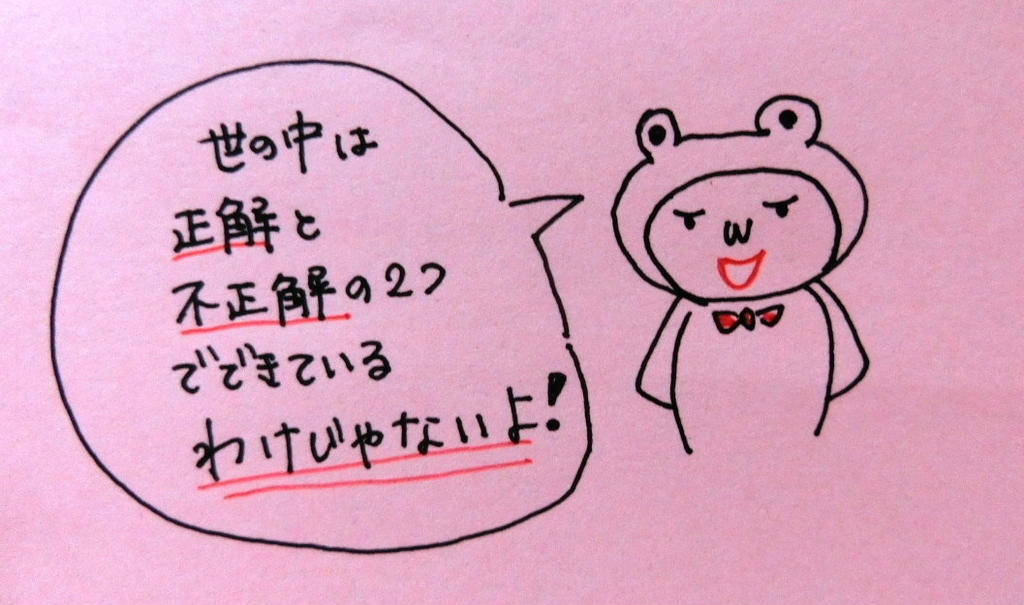 世の中は
正解と
不正解の2つ
でできている
わけじゃないよ!